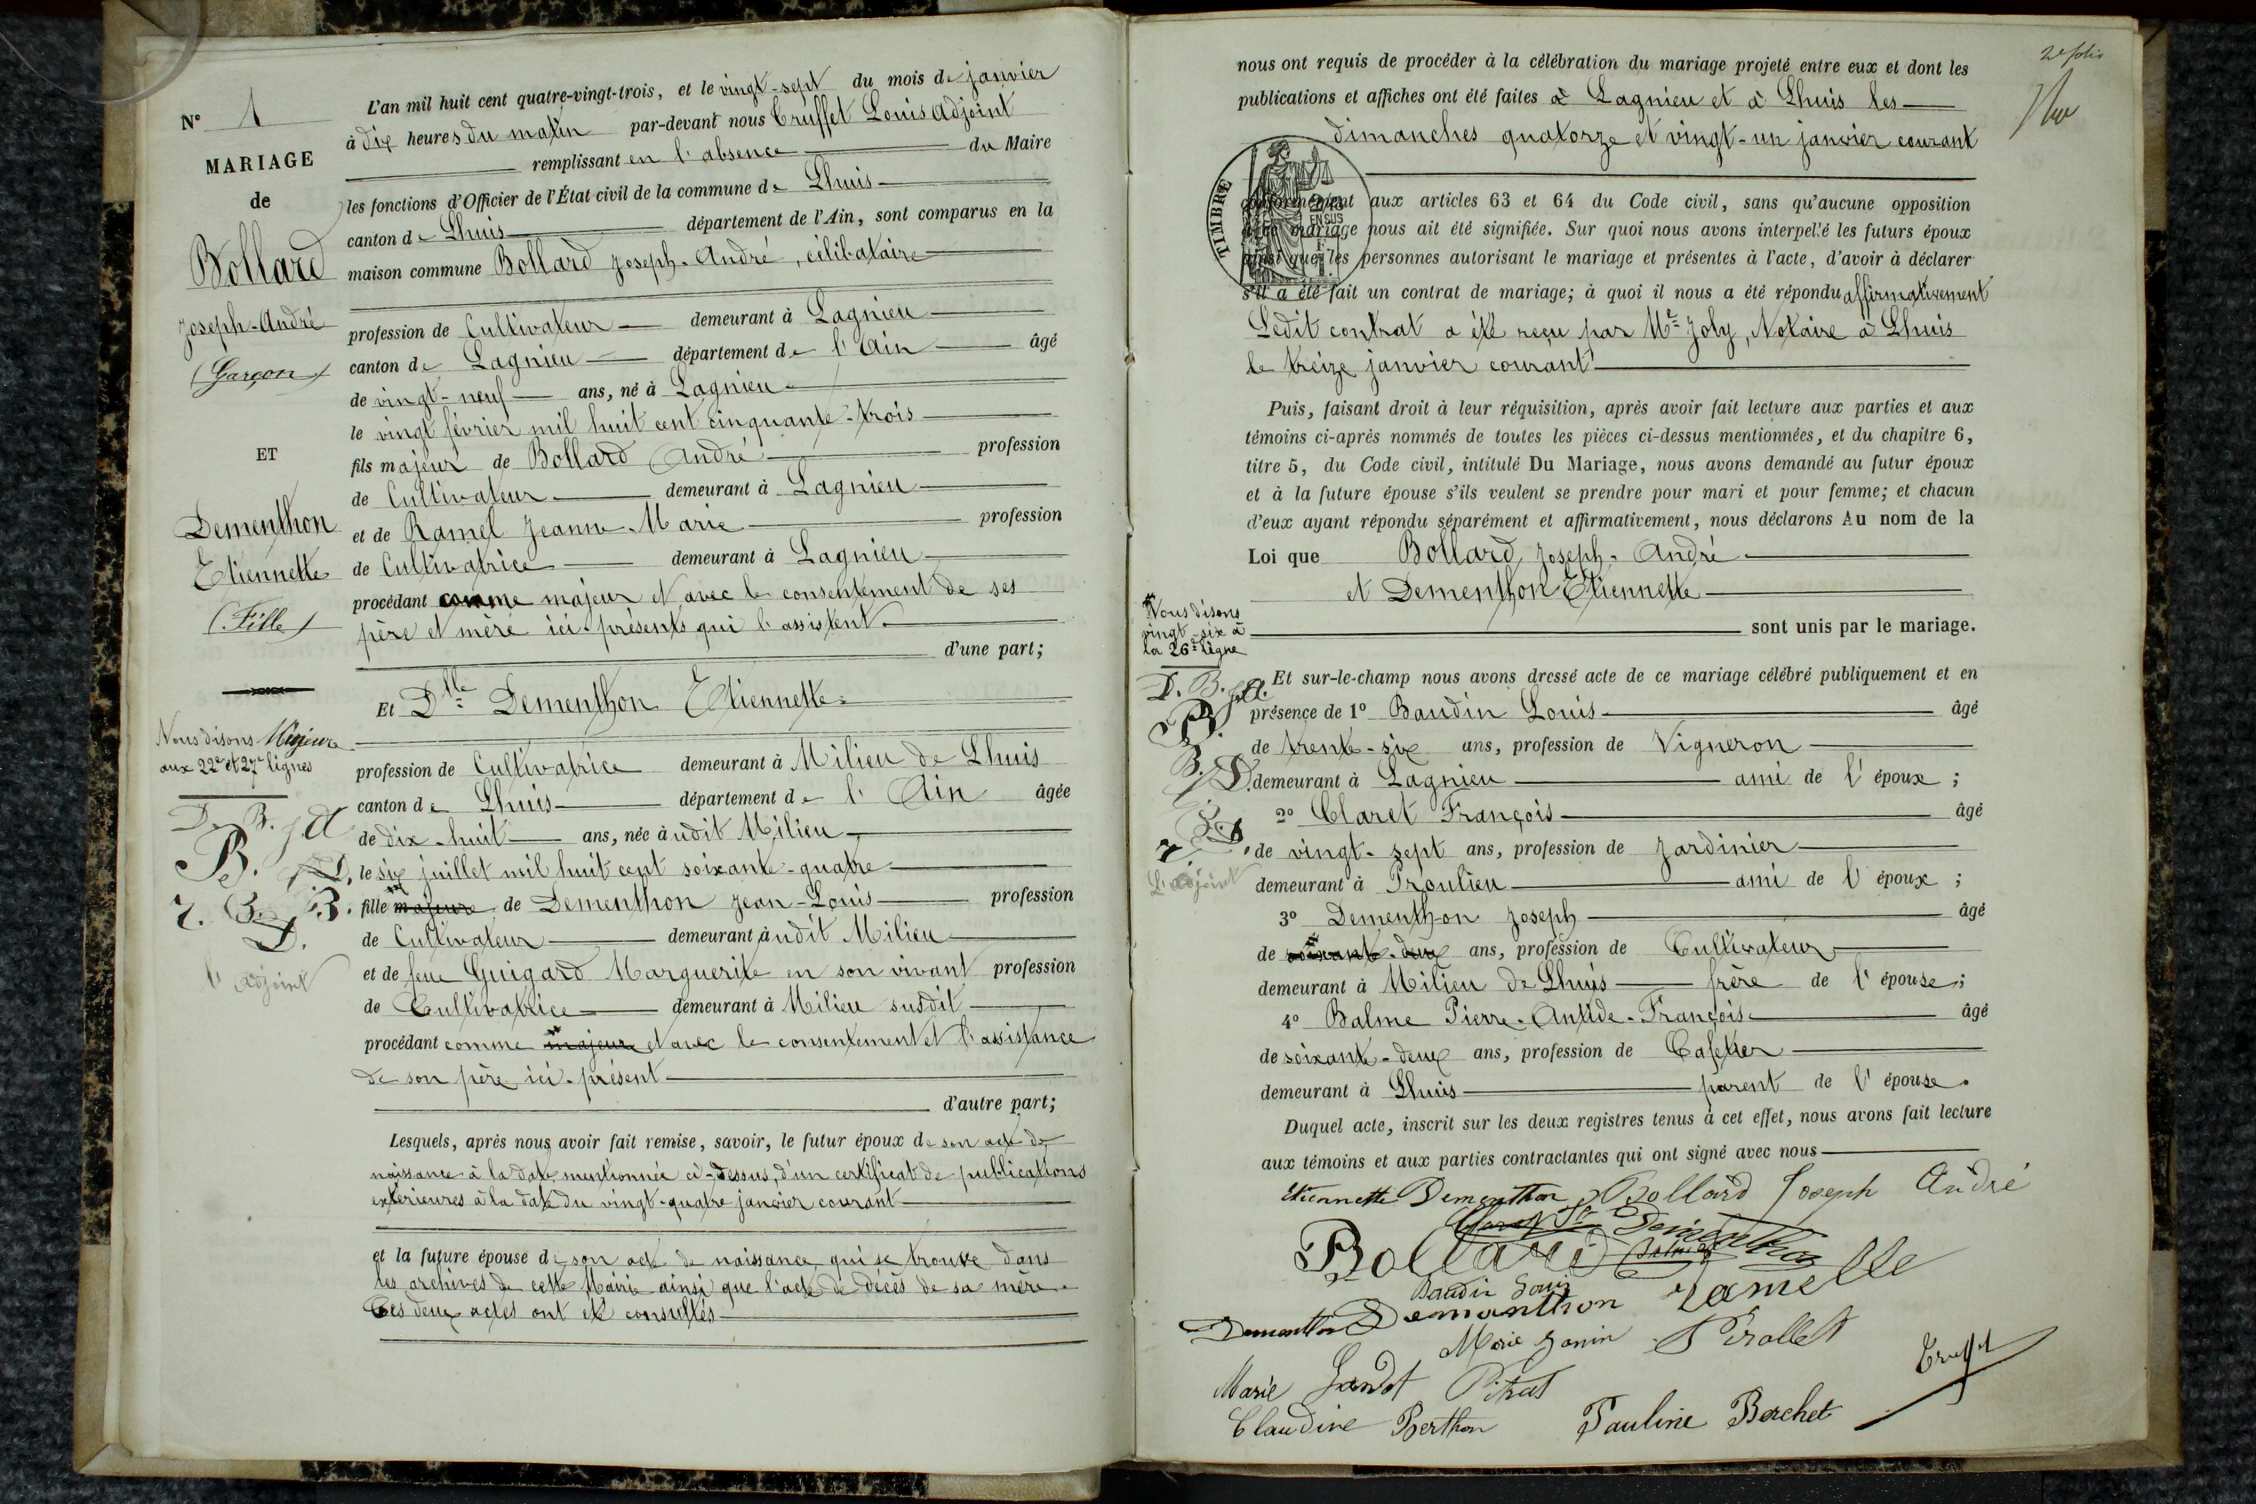 N° 1
MARIAGE
de
Bollard
Joseph-André
(Garçon)
ET
Dementhon
Etiennette
(Fille)
Nous disons Mineure
aux 22e et 27e lignes
D. B. J A
B. J D.
J. B. B.
D.
l'adjoint
L'an mil huit cent quatre-vingt-trois, et le vingt-sept du mois de janvier
à dix heures du matin par-devant nous Truffet Louis adjoint
remplissant en l'absence du Maire
les fonctions d'Officier de l'État civil de la commune de Lhuis
canton de Lhuis département de l'Ain, sont comparus en la
maison commune Bollard Joseph-André, célibataire
profession de Cultivateur demeurant à Lagnieu
canton de Lagnieu département de l'Ain âgé
de vingt-neuf ans, né à Lagnieu
le vingt février mil huit cent cinquante-trois
fils majeur de Bollard André profession
de Cultivateur demeurant à Lagnieu
et de Ramel Jeanne-Marie profession
de Cultivatrice demeurant à Lagnieu
procédant comme majeur et avec le consentement de ses
père et mère ici-présents qui l'assistent
d'une part;
Et Dlle Dementhon Etiennette
profession de Cultivatrice demeurant à Milieu de Lhuis
canton de Lhuis département de l'Ain âgée
de dix-huit ans, née à udit Milieu
le six juillet mil huit cent soixante-quatre
fille majeure de Dementhon Jean-Louis profession
de Cultivateur demeurant à udit Milieu
et de feue Guigard Marguerite en son vivant profession
de Cultivatrice demeurant à Milieu susdit
procédant comme majeure et avec le consentement et l'assistance
de son père ici-présent
d'autre part;
Lesquels, après nous avoir fait remise, savoir, le futur époux de son acte de
naissance à la date mentionnée ci-dessus, d'un certificat de publications
extérieures à la date du vingt-quatre janvier courant
et la future épouse de son acte de naissance qui se trouve dans
les archives de cette Mairie ainsi que l'acte de décès de sa mère.
Ces deux actes ont été consultés
2e folio
nous ont requis de procéder à la célébration du mariage projeté entre eux et dont les
publications et affiches ont été faites à Lagnieu et à Lhuis les
dimanches quatorze et vingt-un janvier courant
TIMBRE
EN SUS
conformément aux articles 63 et 64 du Code civil, sans qu'aucune opposition
à ce mariage nous ait été signifiée. Sur quoi nous avons interpellé les futurs époux
ainsi que les personnes autorisant le mariage et présentes à l'acte, d'avoir à déclarer
s'il a été fait un contrat de mariage; à quoi il nous a été répondu affirmativement
Ledit contrat a été reçu par Me Joly, Notaire à Lhuis
le treize janvier courant
Puis, faisant droit à leur réquisition, après avoir fait lecture aux parties et aux
témoins ci-après nommés de toutes les pièces ci-dessus mentionnées, et du chapitre 6,
titre 5, du Code civil, intitulé Du Mariage, nous avons demandé au futur époux
et à la future épouse s'ils veulent se prendre pour mari et pour femme; et chacun
d'eux ayant répondu séparément et affirmativement, nous déclarons Au nom de la
Loi que Bollard Joseph-André
et Dementhon Etiennette
sont unis par le mariage.
Nous disons
vingt-six à
la 26e ligne
D. B. J A.
B.
B. J D.
L'adjoint
Et sur-le-champ nous avons dressé acte de ce mariage célébré publiquement et en
présence de 1° Baudin Louis âgé
de trente-six ans, profession de Vigneron
demeurant à Lagnieu ami de l'époux;
2° Claret François âgé
de vingt-sept ans, profession de Jardinier
demeurant à Proulieu ami de l'époux;
3° Dementhon Joseph âgé
de soixante-deux ans, profession de Cultivateur
demeurant à Milieu de Lhuis frère de l'épouse;
4° Balme Pierre-Antide-François âgé
de soixante-deux ans, profession de Cafetier
demeurant à Lhuis parent de l'épouse.
Duquel acte, inscrit sur les deux registres tenus à cet effet, nous avons fait lecture
aux témoins et aux parties contractantes qui ont signé avec nous
Etiennette Dementhon Bollard Joseph André
Claret Fs Dementhon
Bollard Balme
Baudin Louis Jamette
Dementhon Demanthon
Marie Janin Pirollet
Marie Jandot Pitrat Truffet
Claudine Berthon Pauline Berchet